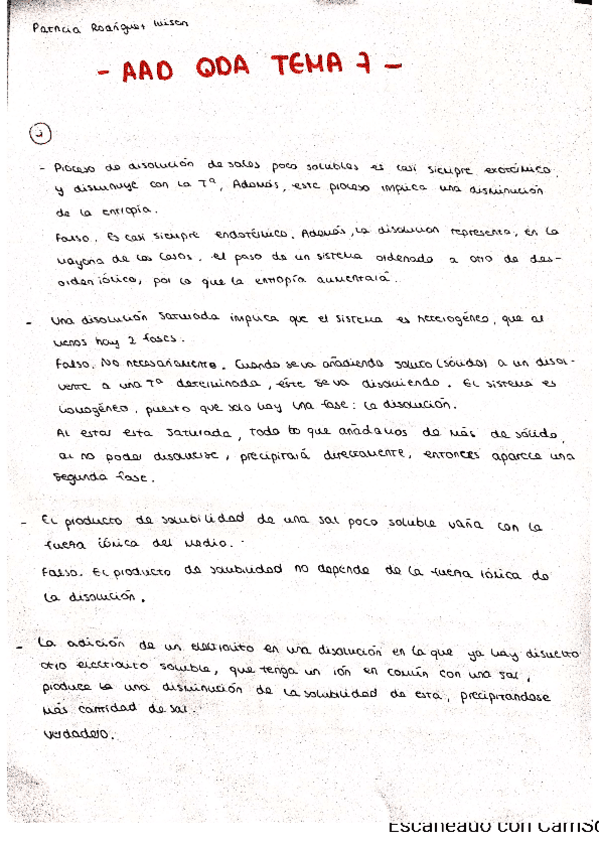 Patricia Rodríguez
- AAD QDA TEMA 7 -
1
- Proceso de disolución de sales poco solubles es casi siempre exotérmico,
y disminuye con la Tª, Además, este proceso implica una disminución
de la entropía.
Falso. Es casi siempre endotérmico. Además, la disolución representa, en la
mayoría de los casos. el paso de un sistema ordenado a otro de des-
orden iónico, por lo que la entropía aumentará.
- Una disolución saturada implica que el sistema es heterogéneo, que al
menos hay 2 fases.
Falso. No necesariamente. Cuando se va añadiendo soluto (sólido) a un disol-
vente a una Tª determinada, éste se va disolviendo. El sistema es
homogéneo, puesto que solo hay una fase: la disolución.
Al estar esta saturada, todo lo que añadamos de más de sólido,
al no poder disolverse, precipitará directamente, entonces aparece una
segunda fase.
- El producto de solubilidad de una sal poco soluble varía con la
fuerza iónica del medio.
Falso. El producto de solubilidad no depende de la fuerza iónica de
la disolución.
- La adición de un electrolito en una disolución en la que ya hay disuelto
otro electrolito soluble, que tenga un ión en común con una sal,
produce una disminución de la solubilidad de esta, precipitandose
más cantidad de sal.
Verdadero.
Escaneado con CamSc